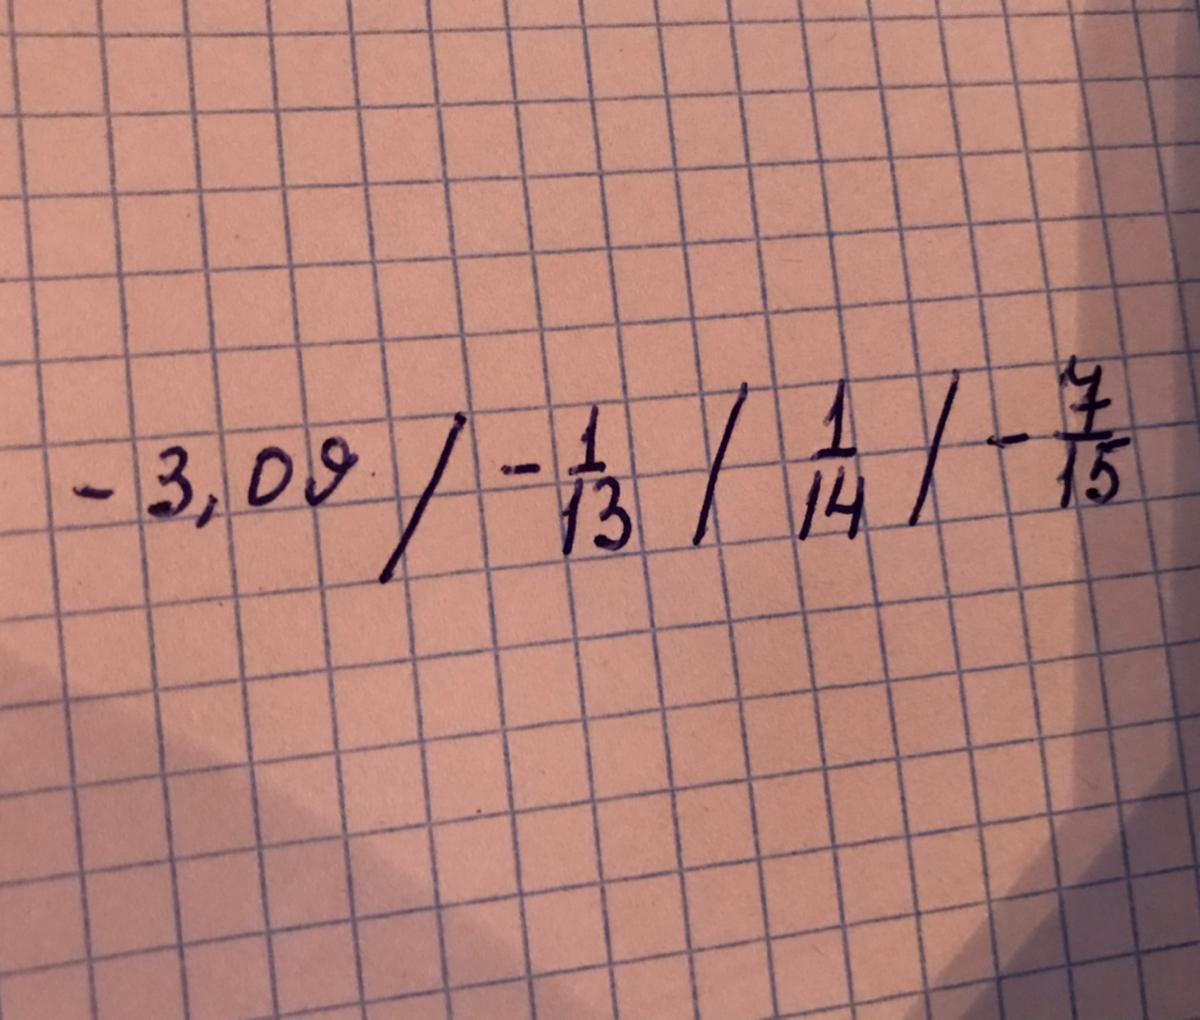 - 3,09 / - 1/13 / 1/14 / - 7/15